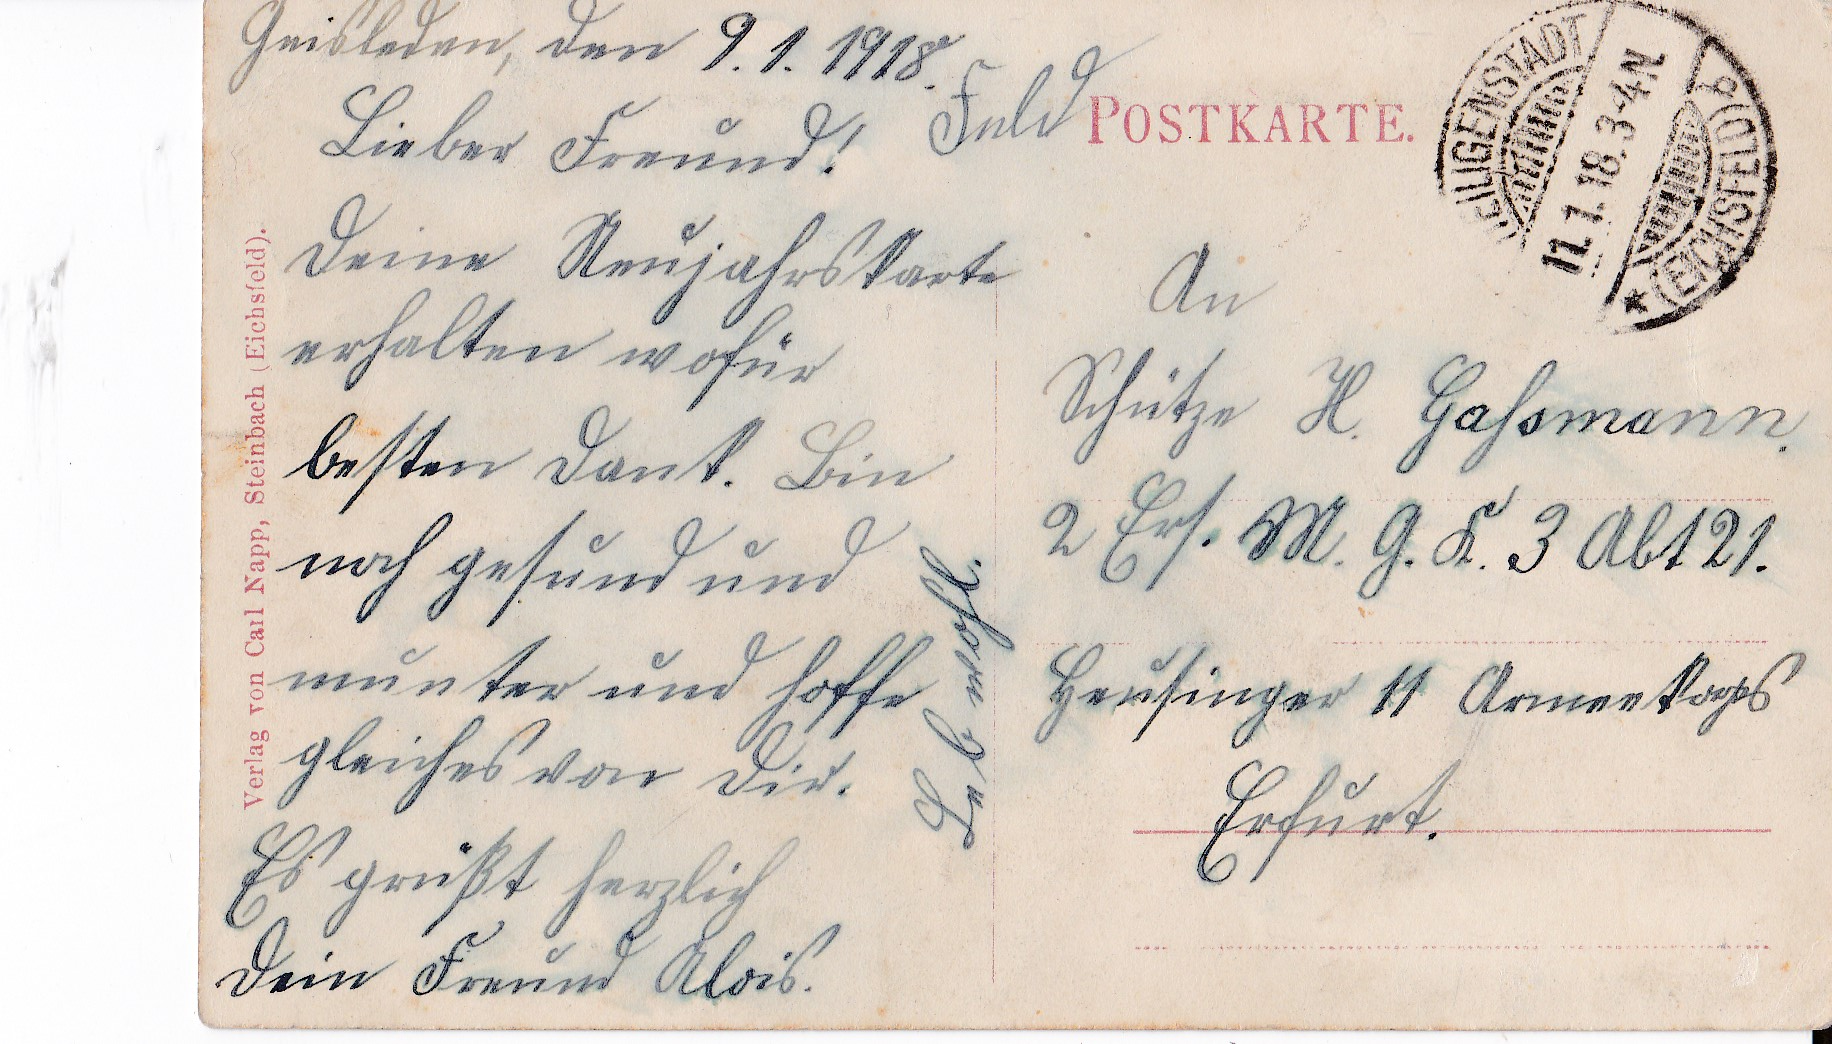 Geisleden, den 9.1.1918.
Lieber Freund!
Deine Neujahrskarte
erhalten wofür
besten Dank. Bin
noch gesund und
munter und hoffe
gleiches von Dir.
Es grüßt herzlich
Dein Freund Alois.
Leb wohl.
Verlag von Carl Napp, Steinbach (Eichsfeld).
Feld POSTKARTE.
HEILIGENSTADT
11.1.18.3-4N
* (EICHSFELD)
An
Schütze H. Gaßmann.
2 Ers. M. G. K. 3 Abt 21.
Heusinger 11 Armeekorps
Erfurt.